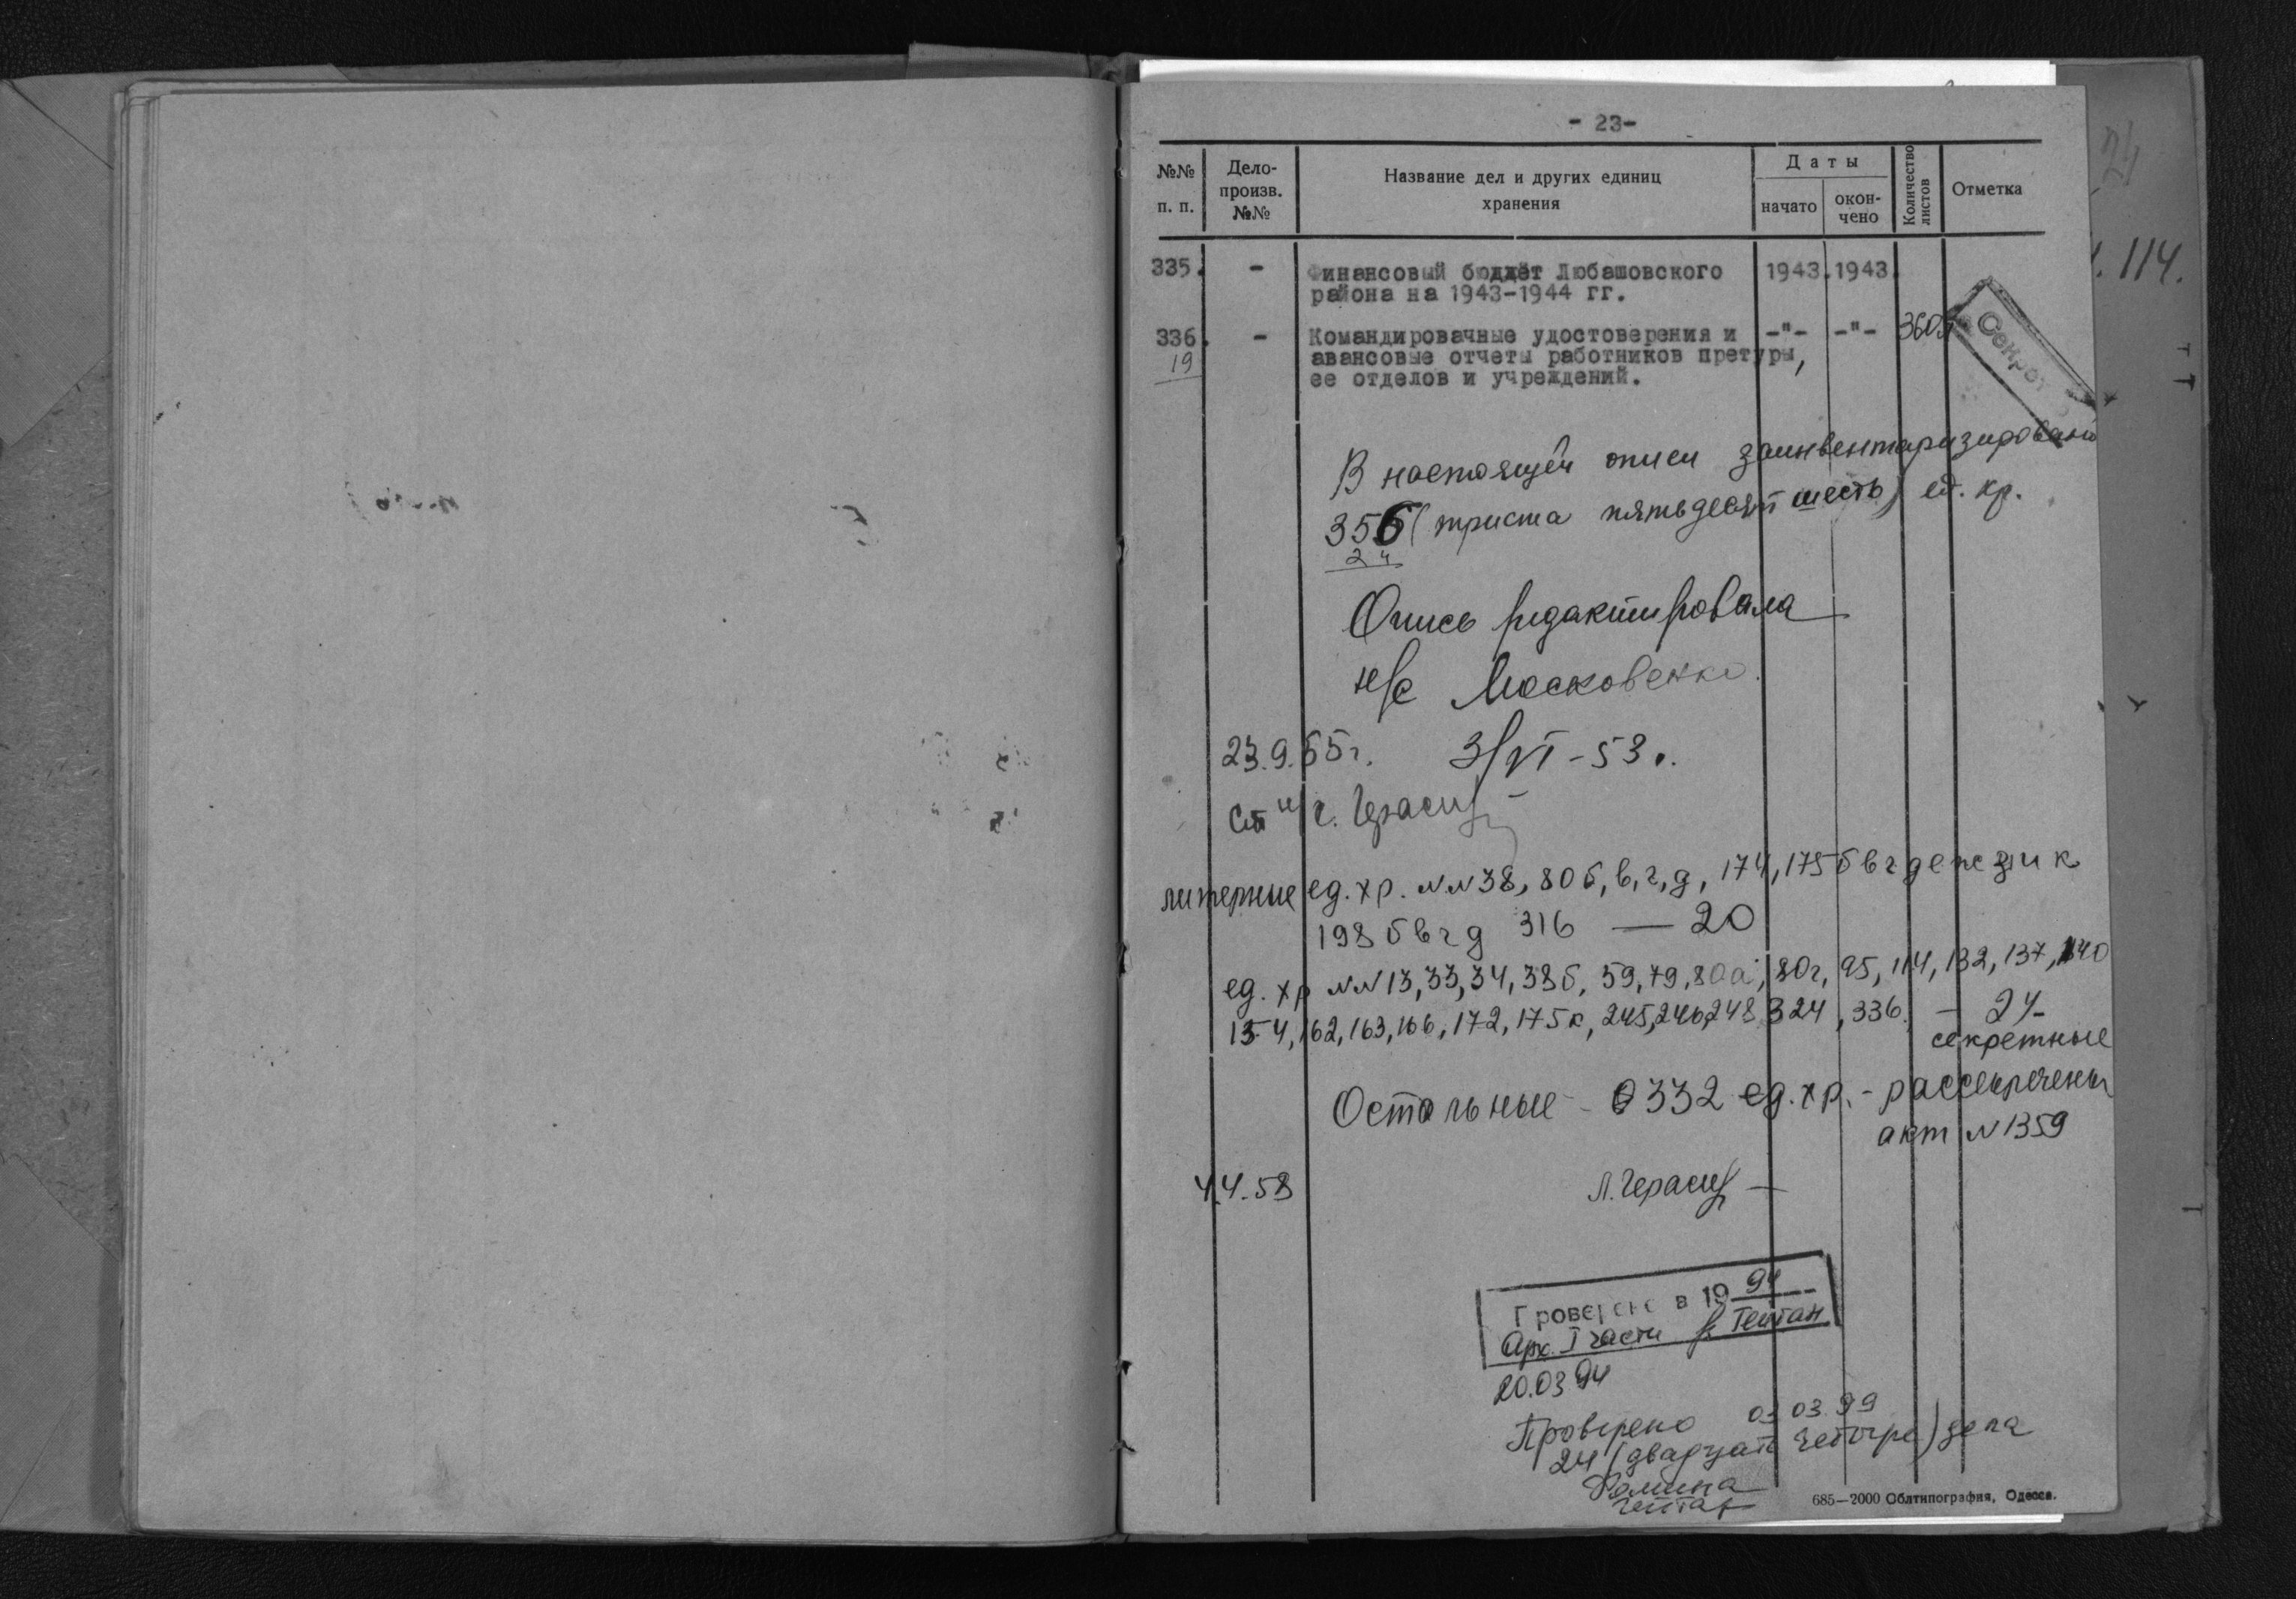 - 23-
№№ п. п.
Дело-произв. №№
Название дел и других единиц хранения
Даты
начато
окон-чено
Количество листов
Отметка
24
114.
335. - Финансовый бюджёт Любашовского 1943. 1943.
района на 1943-1944 гг.
336. - Командировачные удостоверения и -"- -"- 360
19
авансовые отчеты работников претуры,
ее отделов и учреждений.
Секрет
В настоящей описи заинвентаризировано
356 (триста пятьдесят шесть) ед. хр.
24
Опись редактировала
н/с Московенко.
23.9.55г. 3/VI-53.
Ст н/с. Герасим
литерные ед. хр. NN 38, 80б, в, г, д, 174, 175 б в г д е ж з и к
198 б в г д 316 — 20
ед. хр NN 13, 33, 34, 38б, 59, 79, 80а, 80г, 95, 114, 132, 137, 140
154, 162, 163, 166, 172, 175к, 245, 246, 248 324, 336. - 24
секретные
Остальные - 332 ед. хр. - рассекречены
акт N 1359
4.4.58 Л. Герасим
Проверено в 1994
Арх. I части Гейтан
20.03 94
Проверено 03 03.99
24 (двадцать четыре) дела
Фомина